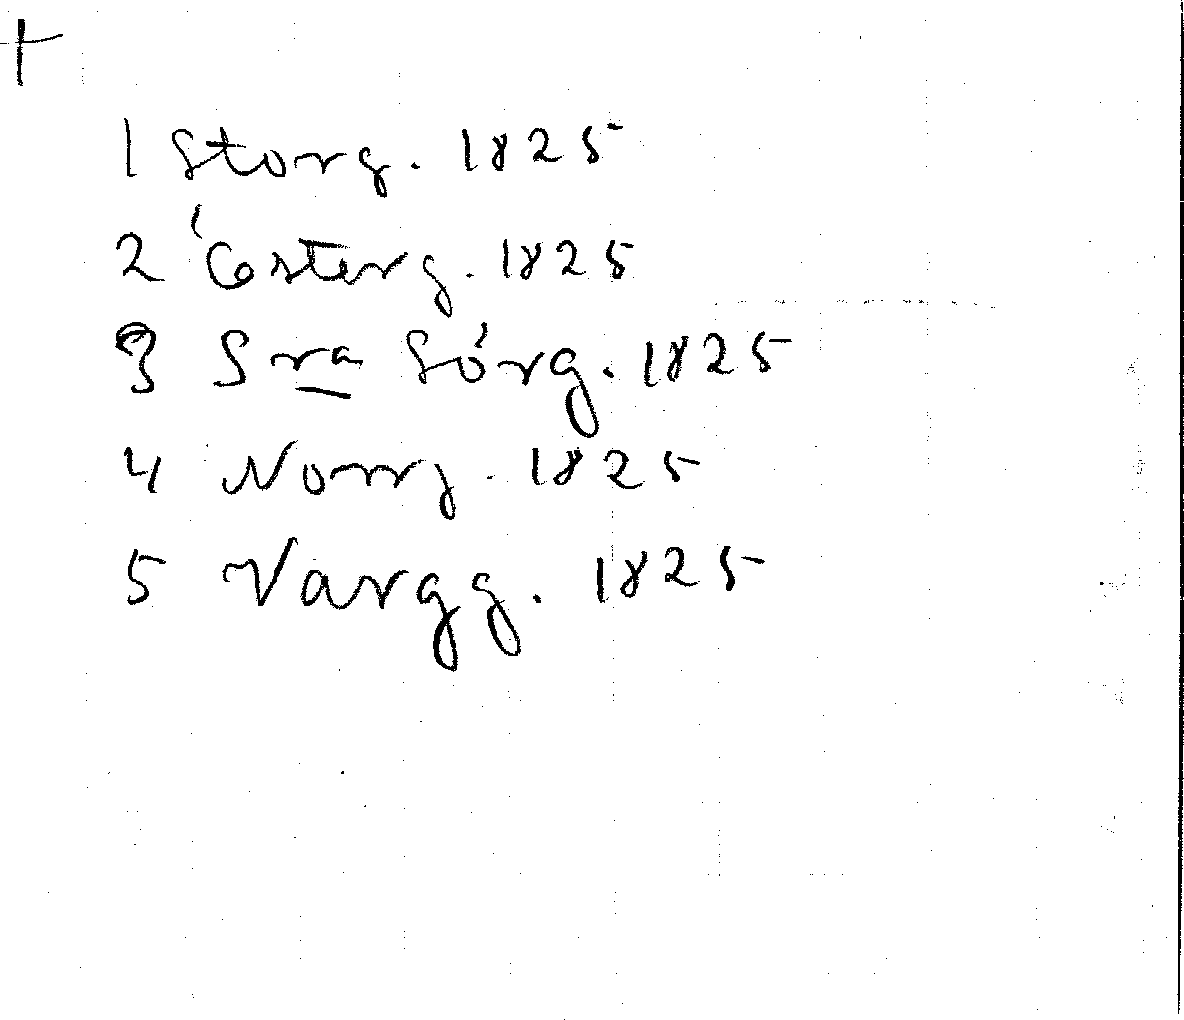 1 Storg. 1825
2 Österg. 1825
3 Sra Sörg. 1825
4 Norrg. 1825
5 Vargg. 1825